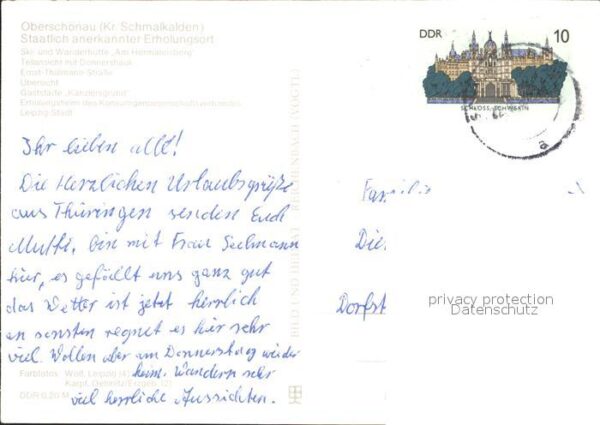 Oberschönau (Kr. Schmalkalden)
Staatlich anerkannter Erholungsort
Ski- und Wanderhütte „Am Hermannsberg"
Teilansicht mit Donnershauk
Ernst-Thälmann-Straße
Übersicht
Gaststätte „Kanzlersgrund"
Erholungsheim des Konsumgenossenschaftsverbandes
Leipzig-Stadt
DDR 10
SCHLOSS SCHWERIN
Ihr lieben all!
Die Herzlichen Urlaubsgrüße
aus Thüringen senden Euch
Mutti, bin mit Frau Seelmann
hier, es gefällt uns ganz gut
das Wetter ist jetzt herrlich
an sonsten regnet es hier sehr
viel. Wollen aber am Donnerstag wieder
heim. Wandern sehr
viel herrliche Aussichten.
Farbfotos: Wolf, Leipzig (4)
Karpf, Gelenau/Erzgeb. (2)
DDR 0,20 M
BILD UND HEIMAT REICHENBACH (VOGTL)
Familie
Die
Dorfst
privacy protection
Datenschutz